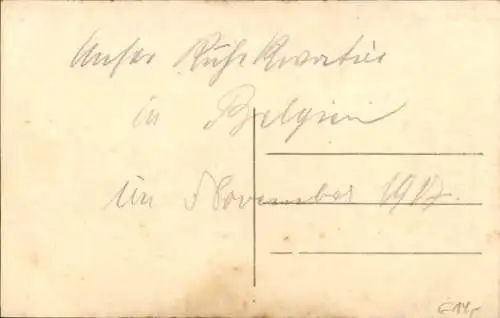 Unser Ruhe Kwartier
in Belgien
im November 1917.
€14,-